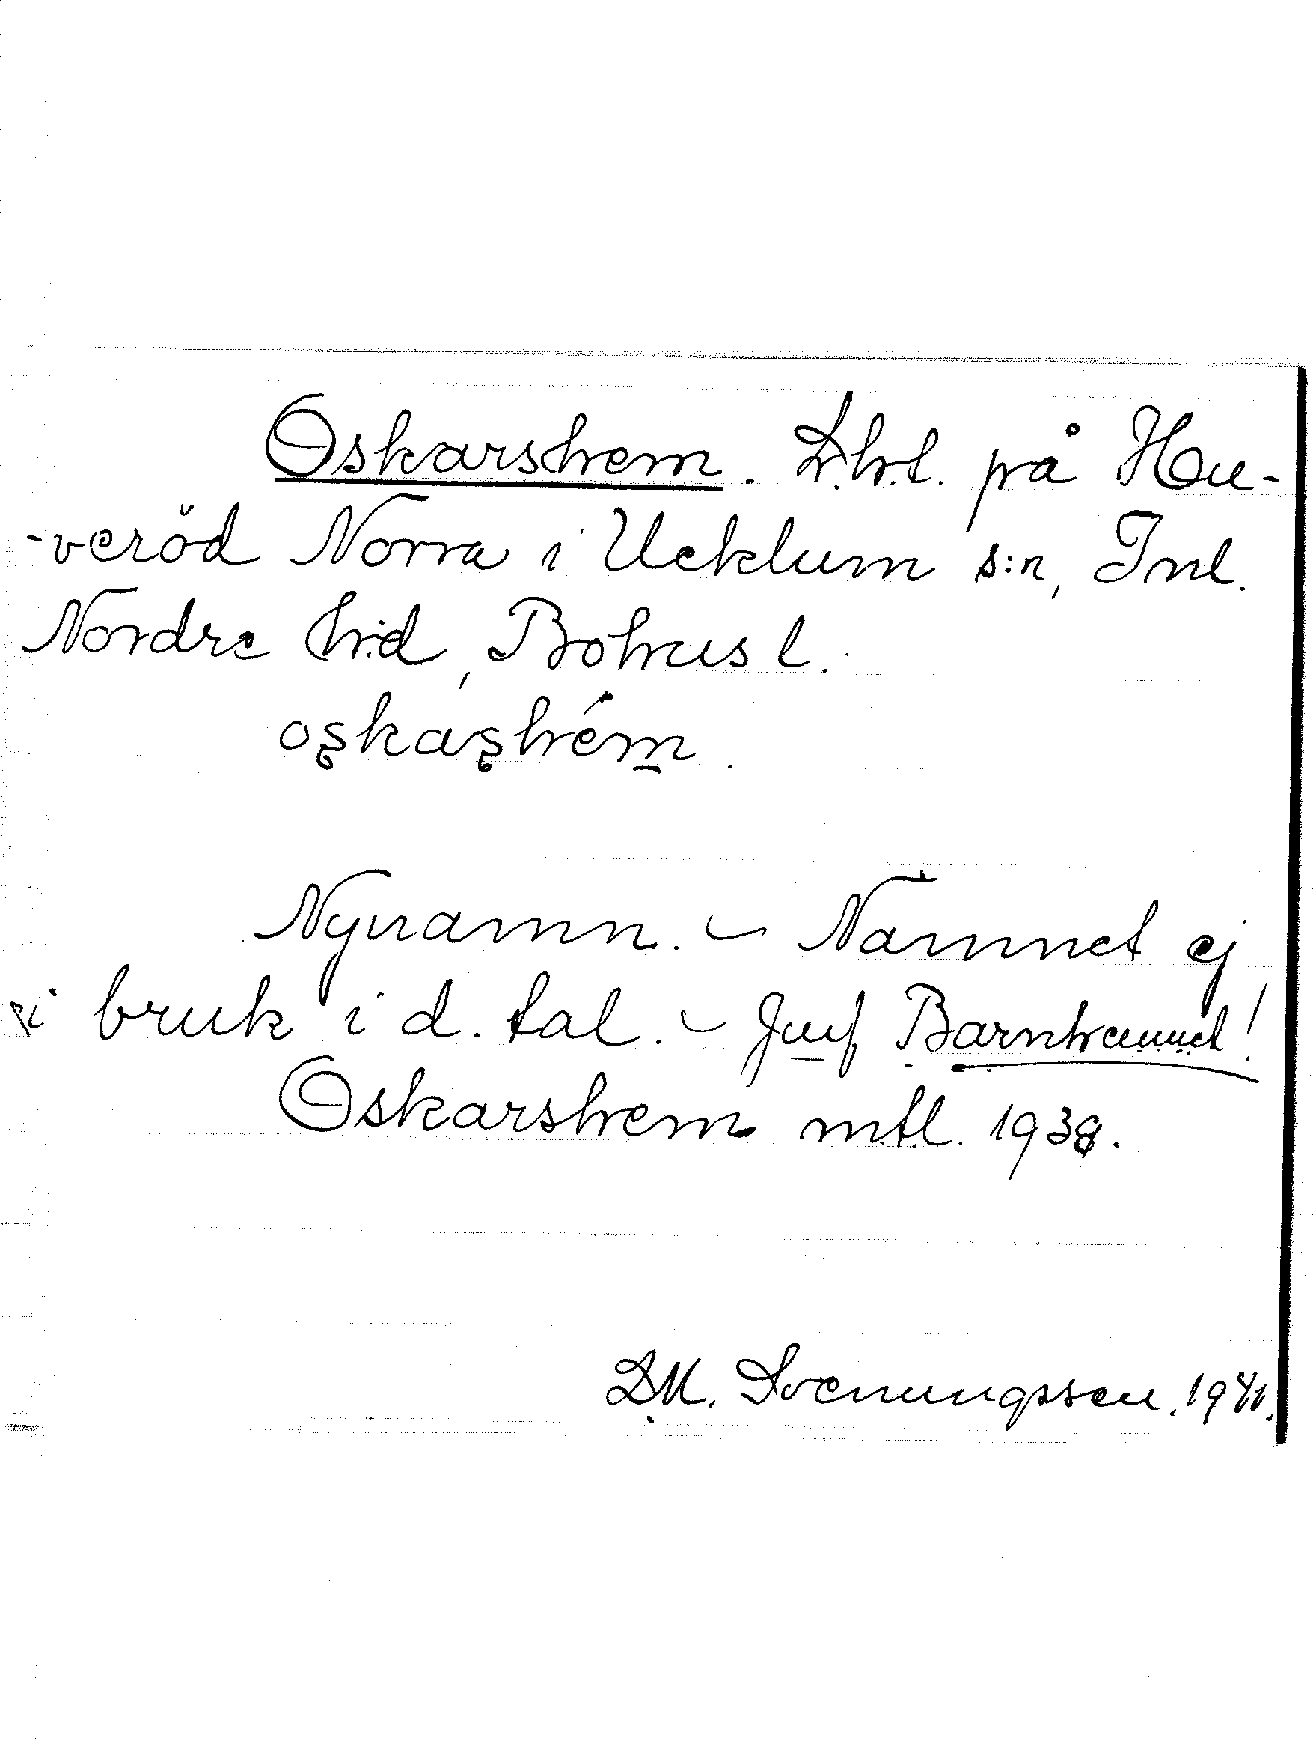 Oskarshem. Lht. på Hu-
-veröd Norra i Ucklum s:n, Inl.
Nordre hd, Bohusl.
oşkaşhém.
Nynamn. – Namnet ej
i bruk i d. tal. – Jmf Barnhemmet!
Oskarshem mtl. 1938.
D.M. Svenungsson. 1941.